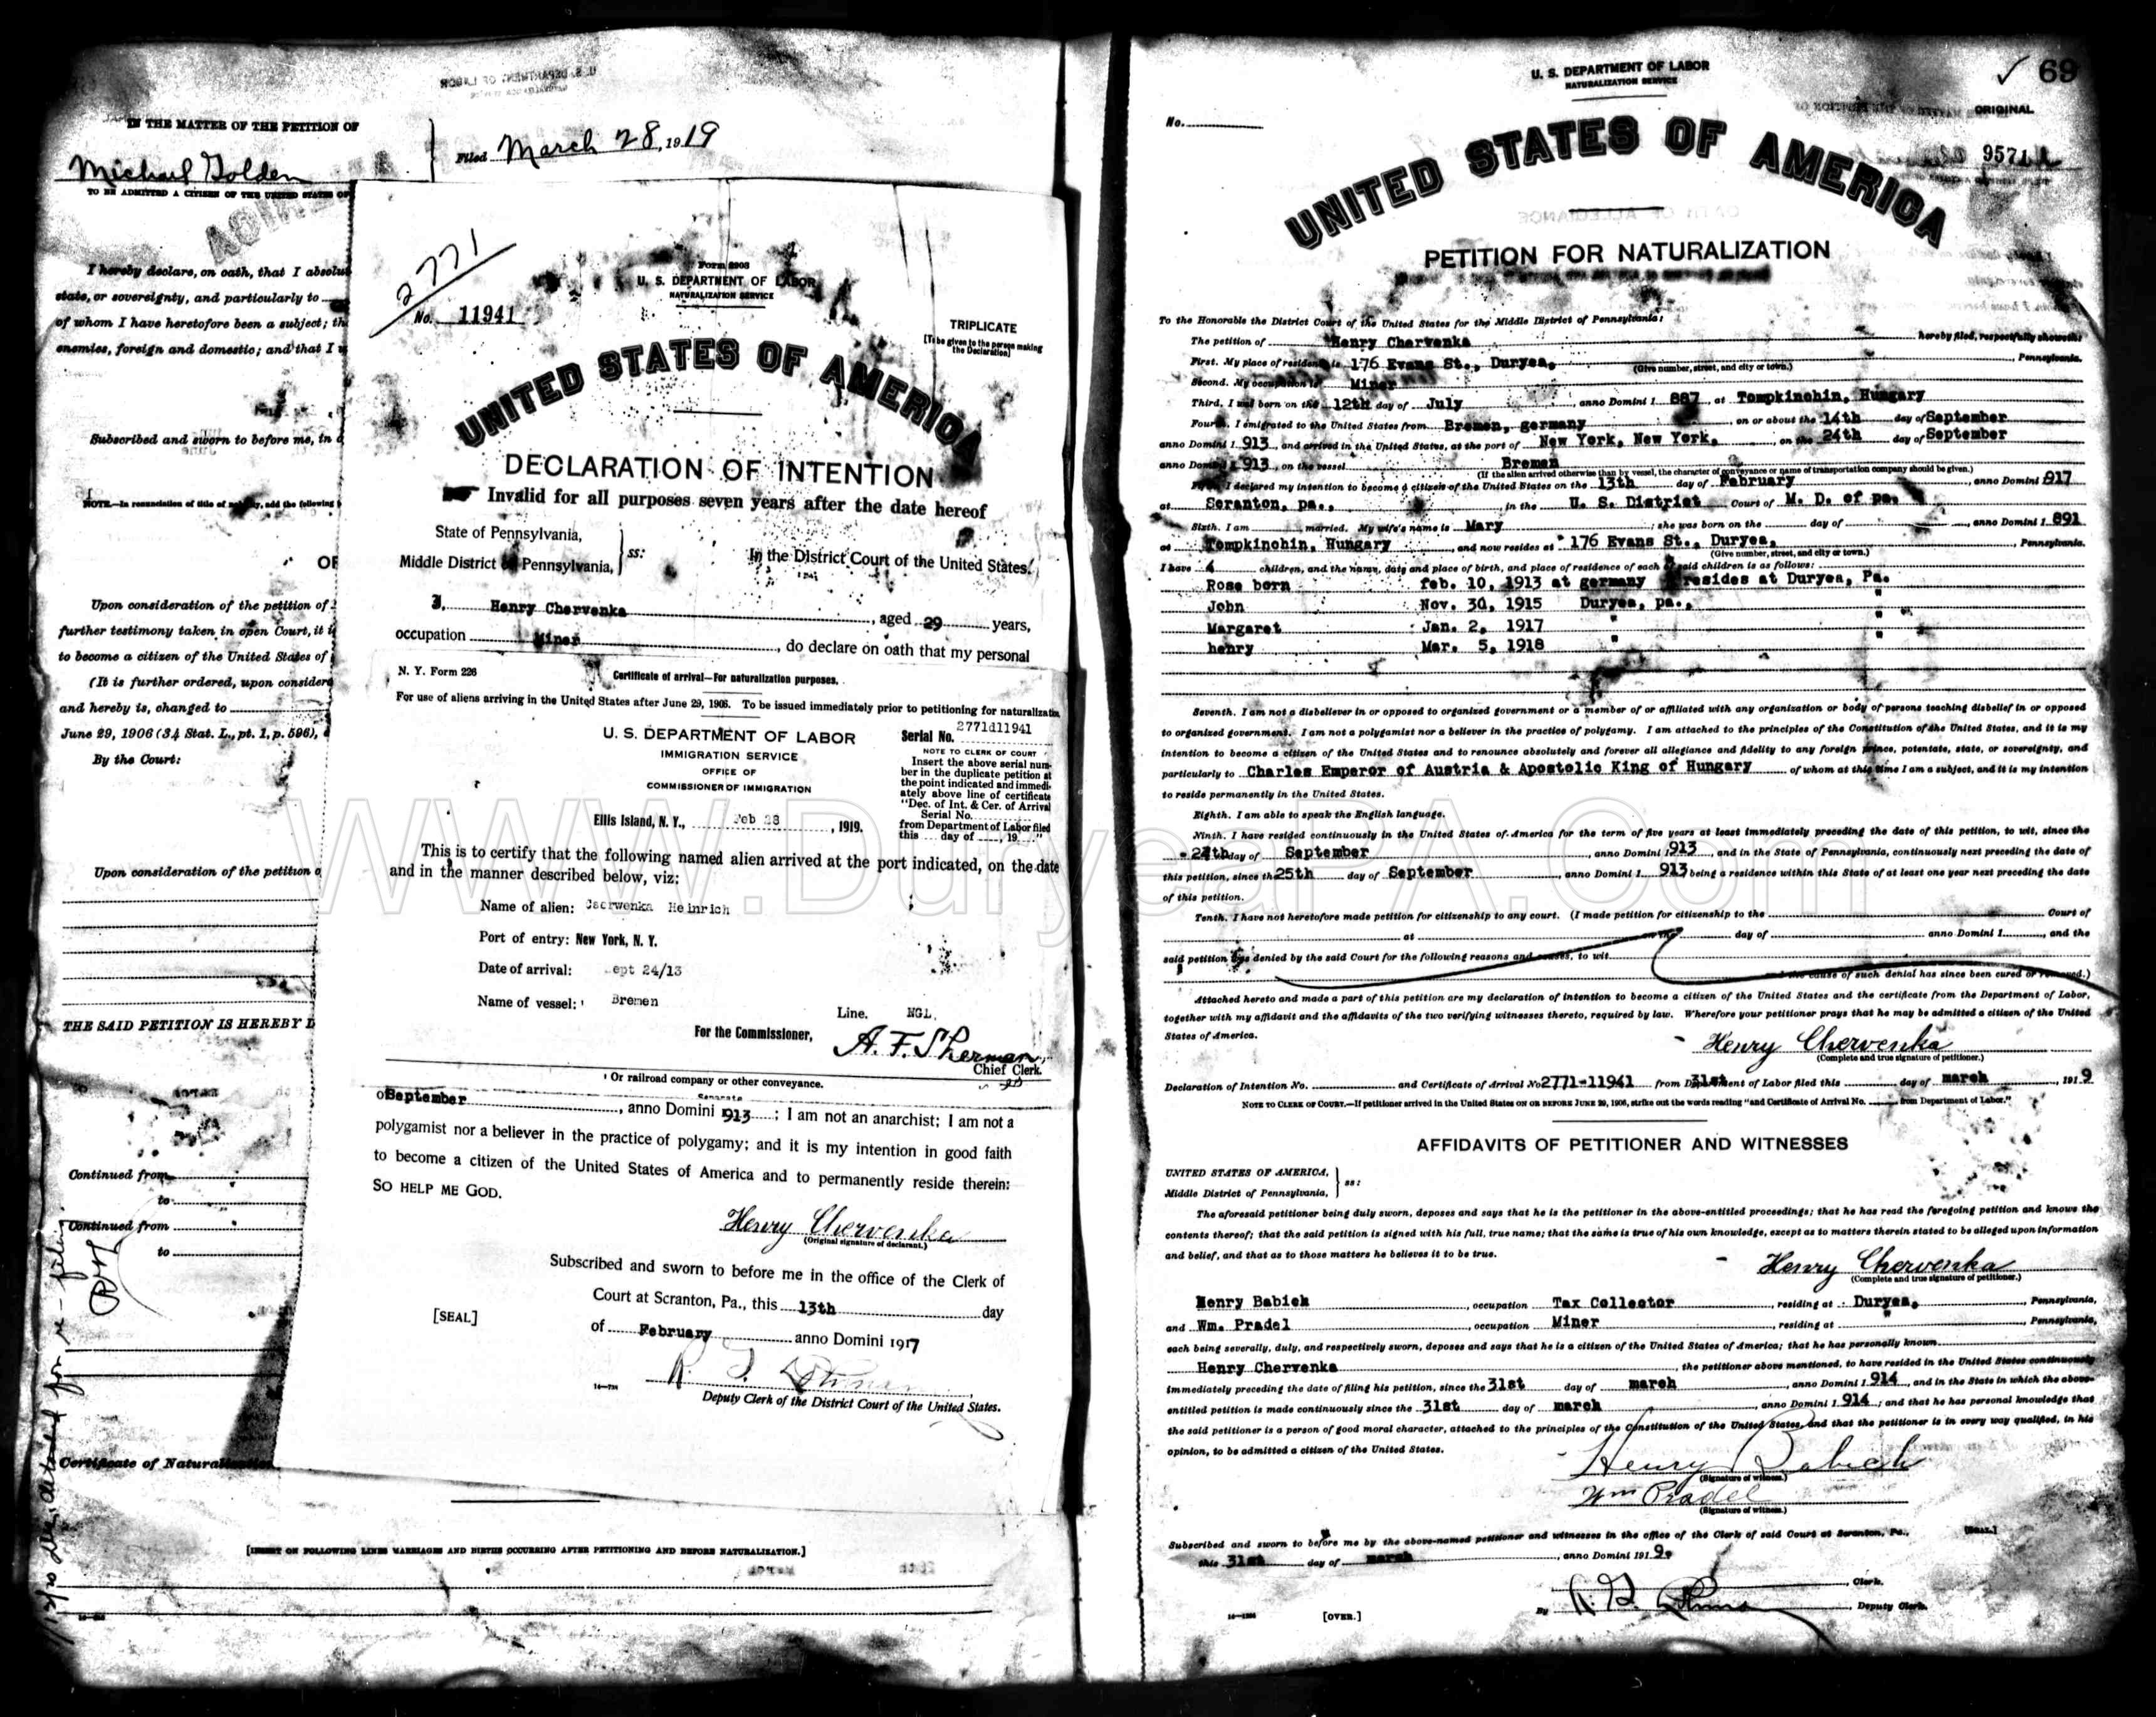 IN THE MATTER OF THE PETITION OF
Michael Golden
Filed March 28, 1919
TO BE ADMITTED A CITIZEN OF THE UNITED STATES OF
I hereby declare, on oath, that I absolut
state, or sovereignty, and particularly to
of whom I have heretofore been a subject; th
enemies, foreign and domestic; and that I
Subscribed and sworn to before me, in
NOTE.—In renunciation of title of nobility, add the following
OF
Upon consideration of the petition of
further testimony taken in open Court, it i
to become a citizen of the United States of
(It is further ordered, upon consider
and hereby is, changed to
June 29, 1906 (34 Stat. L., pt. 1, p. 596),
By the Court:
Upon consideration of the petition o
THE SAID PETITION IS HEREBY D
Continued from
to
Continued from
to
Certificate of Naturalization
[INSERT ON FOLLOWING LINES MARRIAGES AND BIRTHS OCCURRING AFTER PETITIONING AND BEFORE NATURALIZATION.]
2771
Form 2203
U. S. DEPARTMENT OF LABOR
NATURALIZATION SERVICE
No. 11941
TRIPLICATE
[To be given to the person making the Declaration]
UNITED STATES OF AMERICA
DECLARATION OF INTENTION
Invalid for all purposes seven years after the date hereof
State of Pennsylvania,
Middle District of Pennsylvania, ss:
In the District Court of the United States.
I, Henry Chervenka, aged 29 years,
occupation Miner, do declare on oath that my personal
N. Y. Form 226
Certificate of arrival—For naturalization purposes.
For use of aliens arriving in the United States after June 29, 1906. To be issued immediately prior to petitioning for naturalizatio
U. S. DEPARTMENT OF LABOR
IMMIGRATION SERVICE
OFFICE OF
COMMISSIONER OF IMMIGRATION
Serial No. 2771d11941
NOTE TO CLERK OF COURT
Insert the above serial num-
ber in the duplicate petition at
the point indicated and immedi-
ately above line of certificate
"Dec. of Int. & Cer. of Arrival
Serial No.
from Department of Labor filed
this day of , 19 ."
Ellis Island, N. Y., Feb 28, 1919.
This is to certify that the following named alien arrived at the port indicated, on the date
and in the manner described below, viz:
Name of alien: Czerwenka Heinrich
Port of entry: New York, N. Y.
Date of arrival: Sept 24/13
Name of vessel: Bremen
Line. NGL.
For the Commissioner,
A. F. Sherman
Chief Clerk.
Or railroad company or other conveyance.
September, anno Domini 1913; I am not an anarchist; I am not a
polygamist nor a believer in the practice of polygamy; and it is my intention in good faith
to become a citizen of the United States of America and to permanently reside therein:
SO HELP ME GOD.
Henry Chervenka
(Original signature of declarant.)
Subscribed and sworn to before me in the office of the Clerk of
Court at Scranton, Pa., this 13th day
[SEAL]
of February anno Domini 1917
Deputy Clerk of the District Court of the United States.
U. S. DEPARTMENT OF LABOR
NATURALIZATION SERVICE
69
No.
ORIGINAL
9571
UNITED STATES OF AMERICA
PETITION FOR NATURALIZATION
To the Honorable the District Court of the United States for the Middle District of Pennsylvania:
The petition of Henry Chervenka hereby filed, respectfully showeth:
First. My place of residence is 176 Evans St., Duryea, Pennsylvania.
(Give number, street, and city or town.)
Second. My occupation is Miner
Third. I was born on the 12th day of July, anno Domini 1 887, at Tompkinchin, Hungary
Fourth. I emigrated to the United States from Bremen, germany on or about the 14th day of September
anno Domini 1 913, and arrived in the United States, at the port of New York, New York, on the 24th day of September
anno Domini 1 913, on the vessel Bremen
(If the alien arrived otherwise than by vessel, the character of conveyance or name of transportation company should be given.)
Fifth. I declared my intention to become a citizen of the United States on the 13th day of February, anno Domini 1 917
at Scranton, pa., in the U. S. District Court of M. D. of pa.
Sixth. I am married. My wife's name is Mary; she was born on the day of , anno Domini 1 891
at Tompkinchin, Hungary, and now resides at 176 Evans St., Duryea, Pennsylvania.
(Give number, street, and city or town.)
I have 4 children, and the name, date and place of birth, and place of residence of each of said children is as follows:
Rose born feb. 10, 1913 at germany resides at Duryea, Pa.
John Nov. 30, 1915 Duryea, pa., "
Margaret Jan. 2, 1917 " "
henry Mar. 5, 1918 " "
Seventh. I am not a disbeliever in or opposed to organized government or a member of or affiliated with any organization or body of persons teaching disbelief in or opposed
to organized government. I am not a polygamist nor a believer in the practice of polygamy. I am attached to the principles of the Constitution of the United States, and it is my
intention to become a citizen of the United States and to renounce absolutely and forever all allegiance and fidelity to any foreign prince, potentate, state, or sovereignty, and
particularly to Charles Emperor of Austria & Apostolic King of Hungary of whom at this time I am a subject, and it is my intention
to reside permanently in the United States.
Eighth. I am able to speak the English language.
Ninth. I have resided continuously in the United States of America for the term of five years at least immediately preceding the date of this petition, to wit, since the
24th day of September, anno Domini 1 913, and in the State of Pennsylvania, continuously next preceding the date of
this petition, since the 25th day of September, anno Domini 1 913 being a residence within this State of at least one year next preceding the date
of this petition.
Tenth. I have not heretofore made petition for citizenship to any court. (I made petition for citizenship to the Court of
at on the day of anno Domini 1 , and the
said petition was denied by the said Court for the following reasons and causes, to wit
and the cause of such denial has since been cured or removed.)
Attached hereto and made a part of this petition are my declaration of intention to become a citizen of the United States and the certificate from the Department of Labor,
together with my affidavit and the affidavits of the two verifying witnesses thereto, required by law. Wherefore your petitioner prays that he may be admitted a citizen of the United
States of America.
Henry Chervenka
(Complete and true signature of petitioner.)
Declaration of Intention No. and Certificate of Arrival No 2771-11941 from Department of Labor filed this 31st day of march, 191 9
NOTE TO CLERK OF COURT.—If petitioner arrived in the United States ON OR BEFORE JUNE 29, 1906, strike out the words reading "and Certificate of Arrival No. from Department of Labor."
AFFIDAVITS OF PETITIONER AND WITNESSES
UNITED STATES OF AMERICA,
Middle District of Pennsylvania, ss:
The aforesaid petitioner being duly sworn, deposes and says that he is the petitioner in the above-entitled proceedings; that he has read the foregoing petition and knows the
contents thereof; that the said petition is signed with his full, true name; that the same is true of his own knowledge, except as to matters therein stated to be alleged upon information
and belief, and that as to those matters he believes it to be true.
Henry Chervenka
(Complete and true signature of petitioner.)
Henry Babich, occupation Tax Collector, residing at Duryea, Pennsylvania,
and Wm. Pradel, occupation Miner, residing at " Pennsylvania,
each being severally, duly, and respectively sworn, deposes and says that he is a citizen of the United States of America; that he has personally known
Henry Chervenka, the petitioner above mentioned, to have resided in the United States continuously
immediately preceding the date of filing his petition, since the 31st day of march, anno Domini 1 914, and in the State in which the above-
entitled petition is made continuously since the 31st day of march, anno Domini 1 914; and that he has personal knowledge that
the said petitioner is a person of good moral character, attached to the principles of the Constitution of the United States, and that the petitioner is in every way qualified, in his
opinion, to be admitted a citizen of the United States.
Henry Babich
(Signature of witness.)
Wm Pradel
(Signature of witness.)
Subscribed and sworn to before me by the above-named petitioner and witnesses in the office of the Clerk of said Court at Scranton, Pa., [SEAL.]
this 31st day of march, anno Domini 191 9.
Clerk.
By Deputy Clerk.
[OVER.]
WWW.DuryeaPA.Com